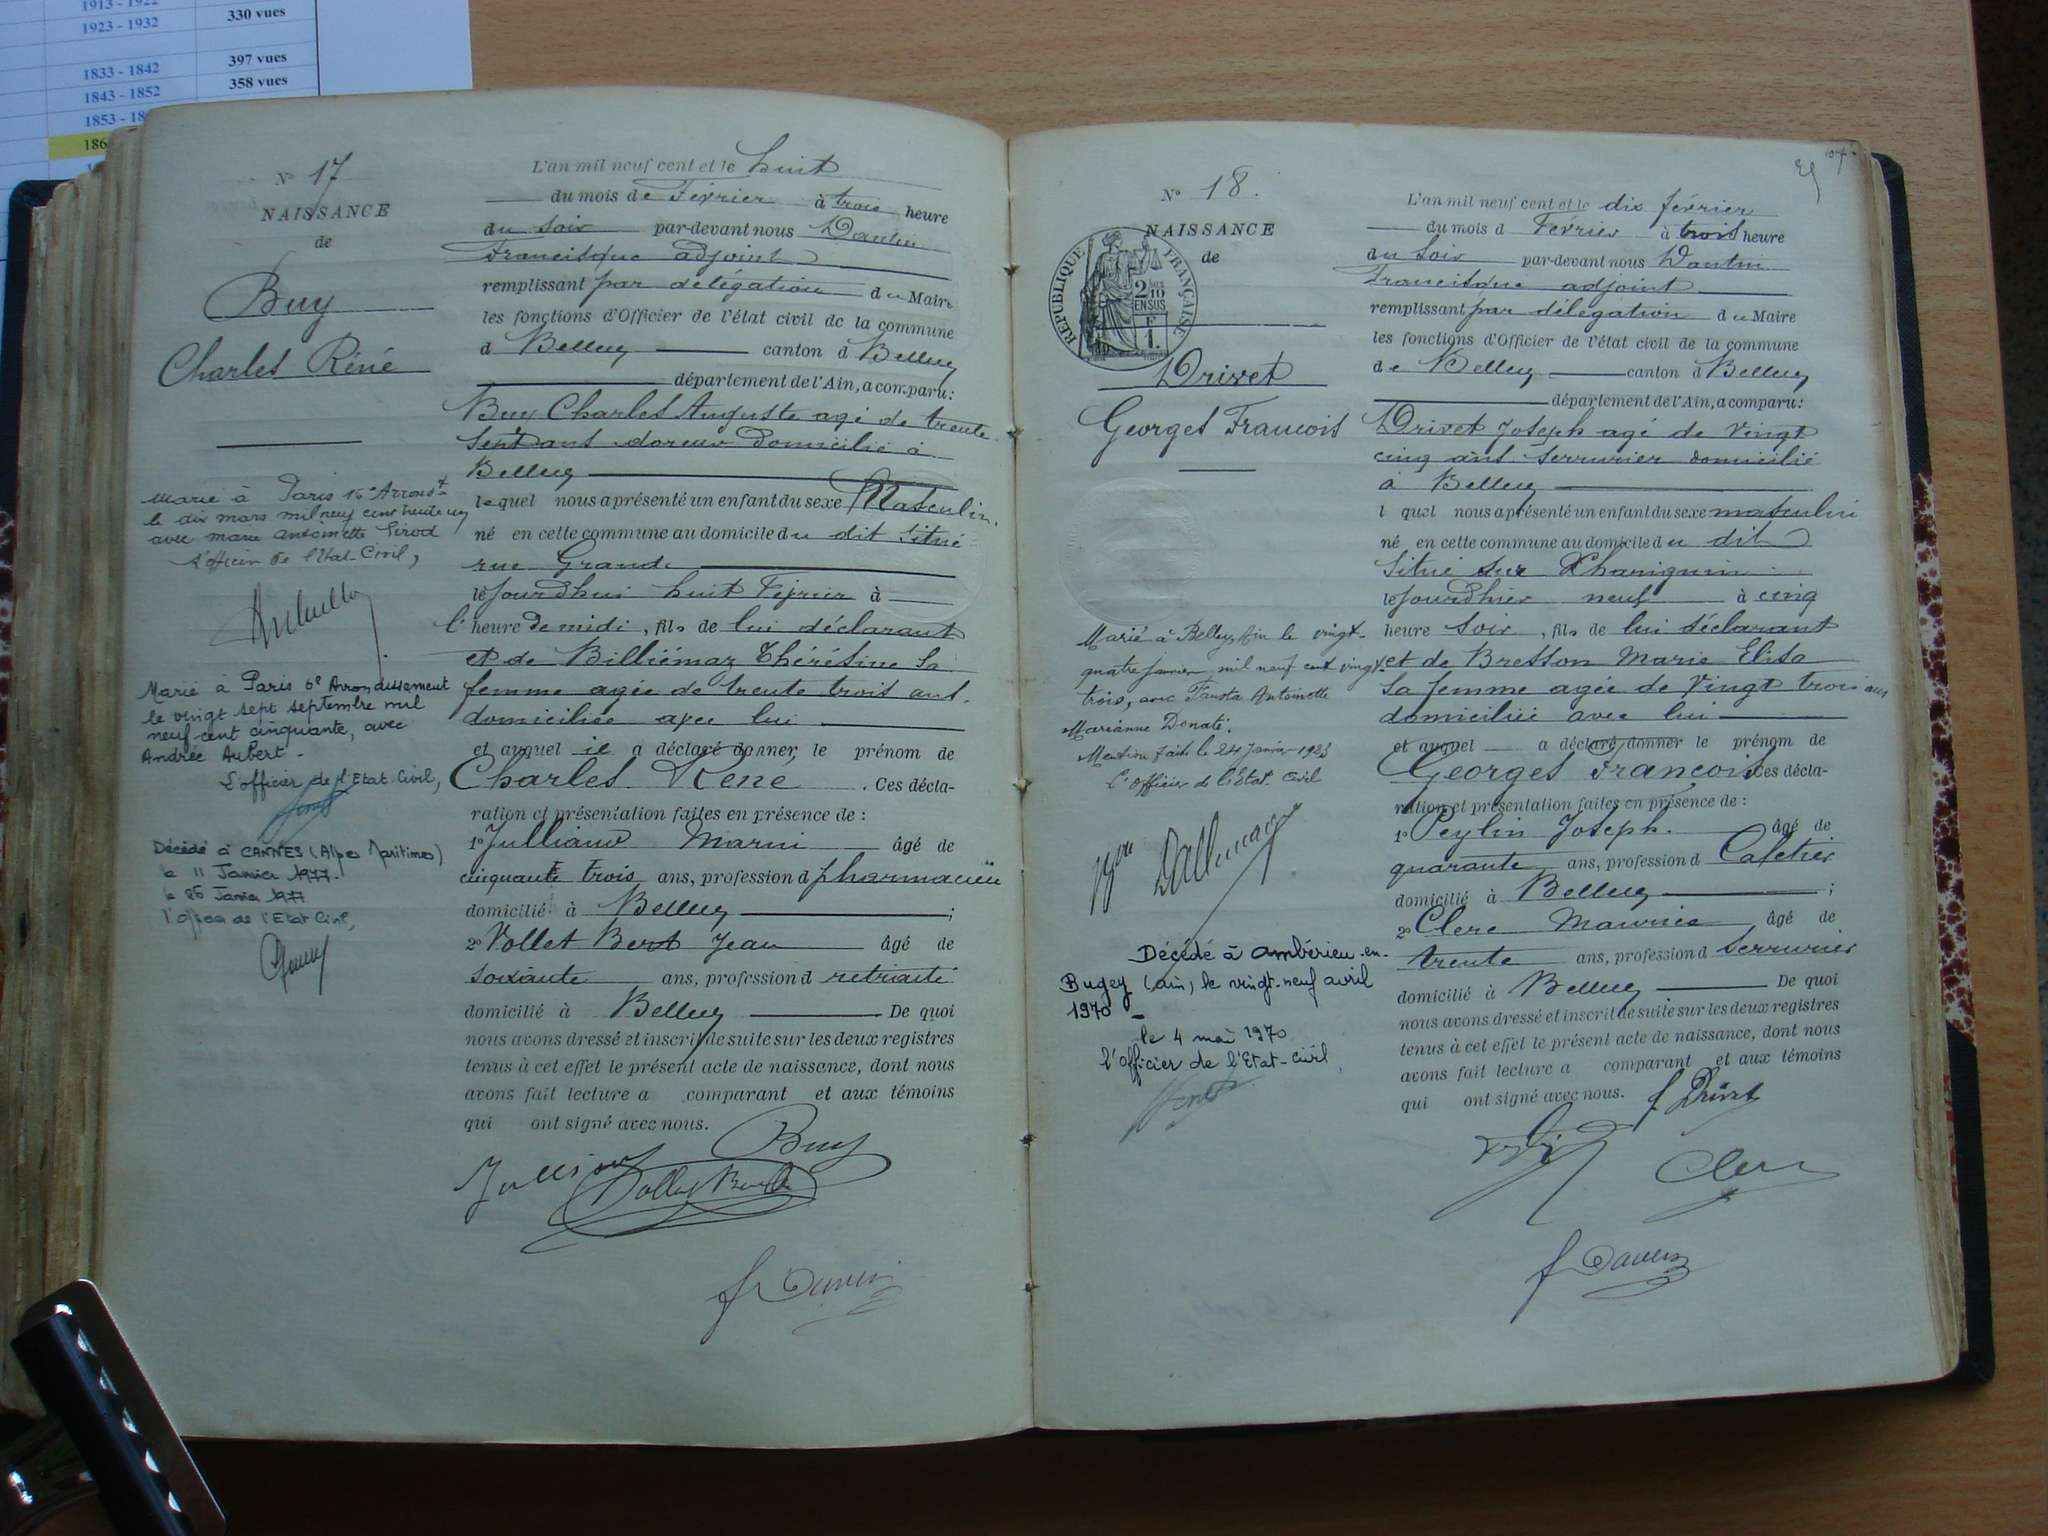 1913 - 1922
1923 - 1932 330 vues
1833 - 1842 397 vues
1843 - 1852 358 vues
1853 - 18
186
N° 17
NAISSANCE
de
Buy
Charles Réné
Marié à Paris 16e Arrondt
le dix mars mil neuf cent trente un
avec marie antoinette Girod
L'officier de l'Etat-Civil,
Marié à Paris 6e Arrondissement
le vingt sept septembre mil
neuf cent cinquante, avec
Andrée Aubert -
L'officier de l'Etat-Civil,
Décédé à CANNES (Alpes Maritimes)
le 11 Janvier 1977.
le 26 Janvier 1977
l'officier de l'Etat Civil,
L'an mil neuf cent et le huit
du mois de Février à trois heure
du soir par-devant nous Dantin
Francisque adjoint
remplissant par délégation du Maire
les fonctions d'Officier de l'état civil de la commune
d Belley canton d Belley
département de l'Ain, a comparu:
Buy Charles Auguste agé de trente
sept ans doreur domicilié à
Belley
lequel nous a présenté un enfant du sexe Masculin.
né en cette commune au domicile du dit situé
rue Grande
le jourdhui huit Février à
l'heure de midi, fils de lui déclarant
et de Billiémaz Thérésine sa
femme agée de trente trois ans.
domiciliée avec lui
et auquel il a déclaré donner le prénom de
Charles Réne . Ces décla-
ration et présentation faites en présence de :
1° Julliand Marin âgé de
cinquante trois ans, profession d pharmacien
domicilié à Belley ;
2° Vollet Bert Jean âgé de
soixante ans, profession d retraité
domicilié à Belley De quoi
nous avons dressé et inscrit de suite sur les deux registres
tenus à cet effet le présent acte de naissance, dont nous
avons fait lecture a comparant et aux témoins
qui ont signé avec nous.
Buy
Julliand
Vollet Bert
N° 18.
NAISSANCE
de
RÉPUBLIQUE FRANÇAISE
2/10 EN SUS
F
1.
Drivet
Georges Francois
Marié à Belley, Ain le vingt-
quatre janvier mil neuf cent vingt-
trois, avec Fausta Antoinette
Marianne Donati.
Mention faite le 24 Janvier 1923
L'officier de l'Etat Civil
Décédé à Ambérieu-en-
Bugey (Ain) le vingt-neuf avril
1970 -
le 4 mai 1970
l'officier de l'Etat-Civil,
L'an mil neuf cent et le dix février
du mois d Février à trois heure
du soir par-devant nous Dantin
Francisque adjoint
remplissant par délégation du Maire
les fonctions d'Officier de l'état civil de la commune
de Belley canton d Belley
département de l'Ain, a comparu:
Drivet Joseph agé de vingt
cinq ans serrurier domicilié
à Belley
l quel nous a présenté un enfant du sexe masculin
né en cette commune au domicile du dit
situé sur
le jourdhier neuf à cinq
heure soir, fils de lui déclarant
et de Bresson Marie Elisa
sa femme agée de vingt trois ans
domiciliée avec lui
et auquel a déclaré donner le prénom de
Georges Francois Ces décla-
ration et présentation faites en présence de :
1° Peylin Joseph. âgé de
quarante ans, profession d Cafetier
domicilié à Belley ;
2° Clerc Maurice âgé de
trente ans, profession d serrurier
domicilié à Belley De quoi
nous avons dressé et inscrit de suite sur les deux registres
tenus à cet effet le présent acte de naissance, dont nous
avons fait lecture a comparant et aux témoins
qui ont signé avec nous. J Drivet
Clerc